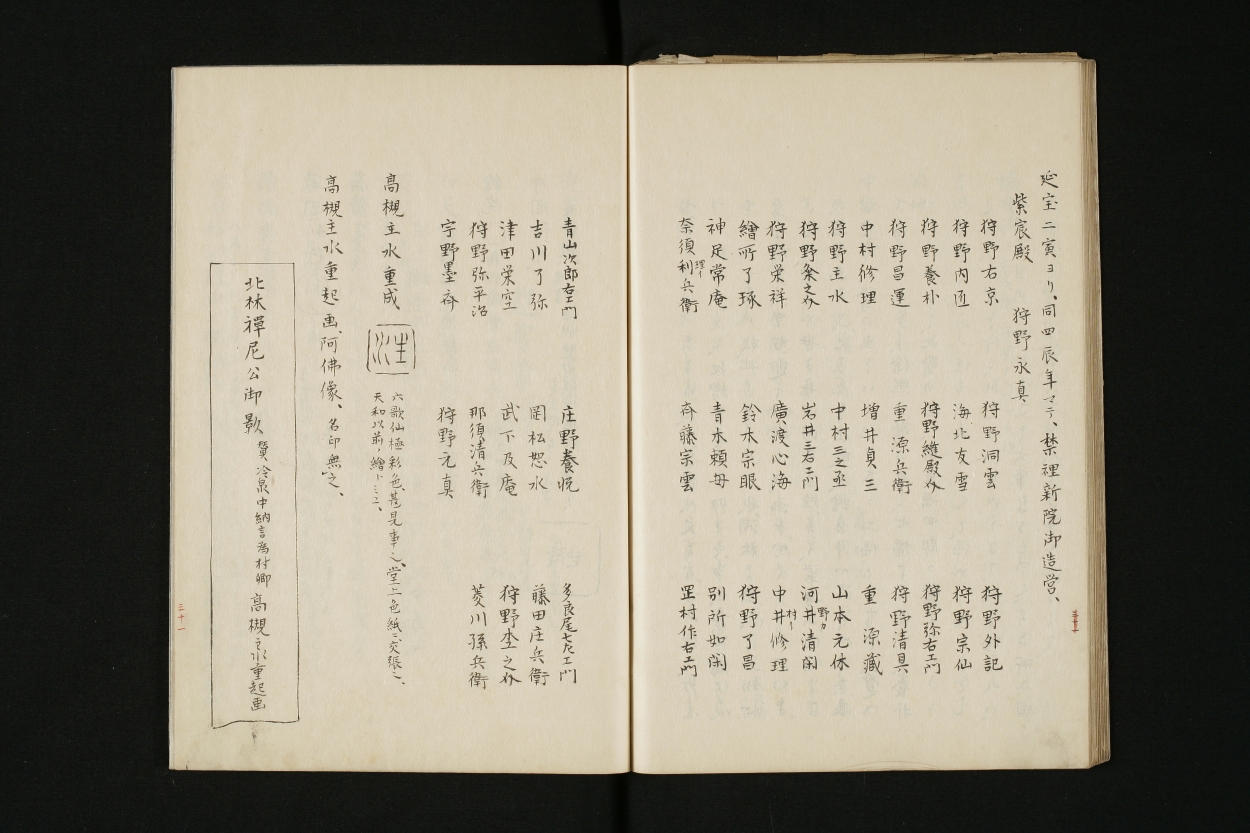 延宝二寅ヨリ、同四辰年マテ、禁裡新院御造営、
紫宸殿 狩野永真
狩野右京 狩野洞雲 狩野外記
狩野内匠 海北友雪 狩野宗仙
狩野養朴 狩野縫殿介 狩野弥右エ門
狩野昌運 重源兵衛 狩野清真
中村修理 増井貞三 重源蔵
狩野主水 中村三之丞 山本元休
狩野粂之介 岩井三右エ門 河井清閑
野カ
狩野栄祥 廣渡心海 中井修理
村イ
繪所了琢 鈴木宗眼 狩野了昌
神足常庵 青木頼母 別所如閑
奈須利兵衛 斉藤宗雲 罡村作右エ門
理イ
三十
青山次郎右エ門 庄野養悦 多良尾七左エ門
吉川了弥 罡松恕水 藤田庄兵衛
津田栄空 武下及庵 狩野杢之介
狩野弥平治 那須清兵衛 菱川孫兵衛
宇野墨斉 狩野元真
高槻主水重成 六歌仙極彩色、甚見事也、堂上色紙ニ交張也、
天和以前ノ繪ト
高槻主水重起画、阿佛像、名印無之、
北林禅尼公御影 賛冷泉中納言為村卿 高槻主水重起画
三十一